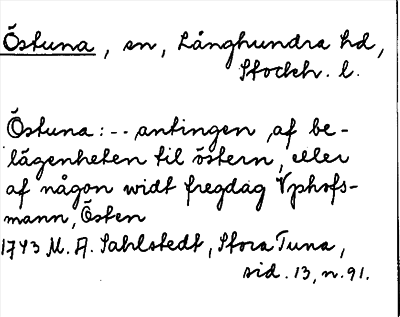 Östuna, sn, Långhundra hd,
Stockh. l.
Östuna: -- antingen af be-
lägenheten til östern, eller
af någon widt fregdag Vphofs-
mann, Östen
1743 M. A. Sahlstedt, Stora Tuna,
sid. 13, n. 91.